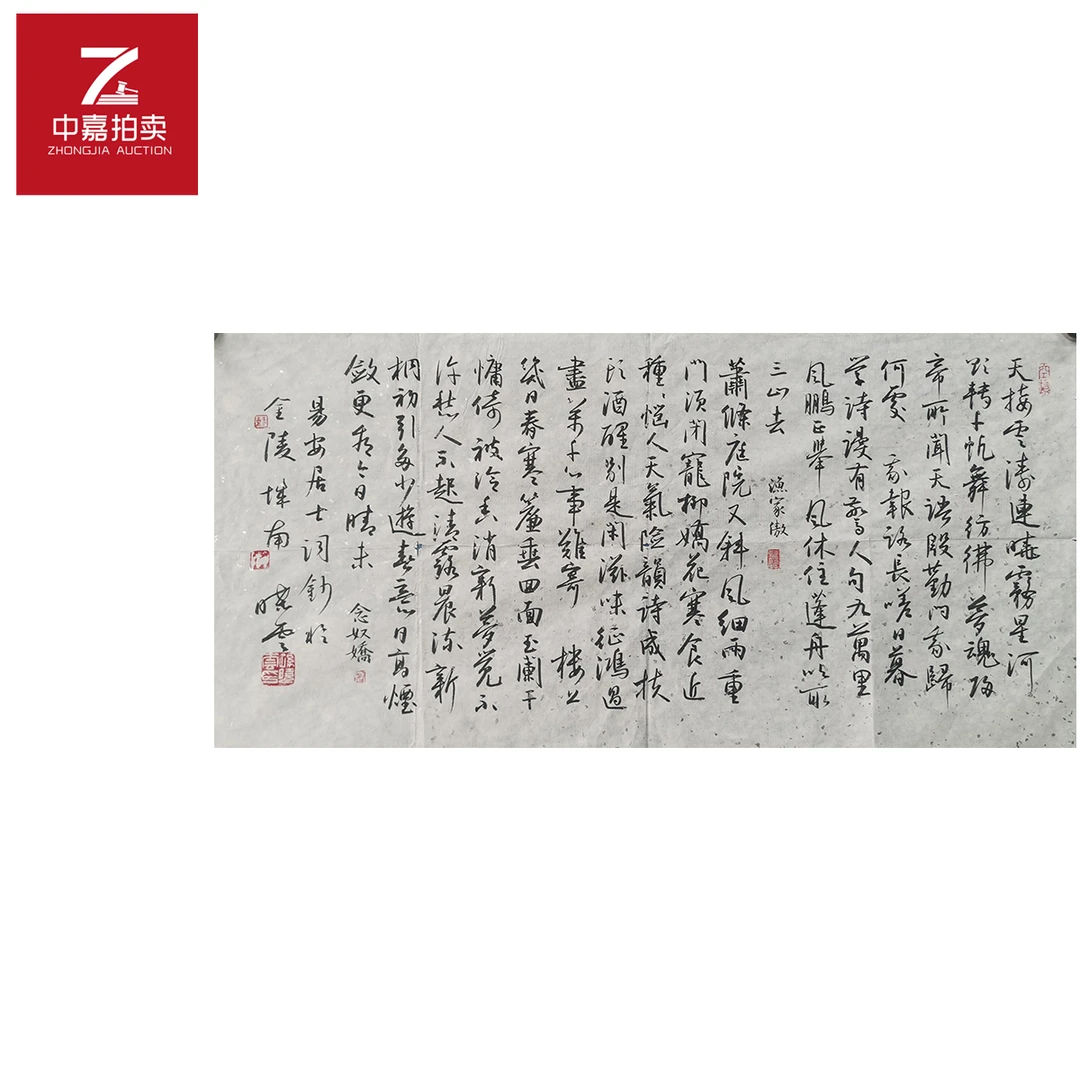 中嘉拍卖
ZHONGJIA AUCTION
天接雲濤連曉霧星河
欲轉千帆舞彷彿夢魂歸
帝所聞天語殷勤問我歸
何處 我報路長嗟日暮
学詩謾有驚人句九萬里
風鵬正舉風休住蓬舟吹取
三山去
漁家傲
蕭條庭院又斜風細雨重
門須閉寵柳嬌花寒食近
種、惱人天氣險韻詩成扶
頭酒醒別是閑滋味征鴻過
盡萬千心事難寄 楼上
幾日春寒簾垂四面玉闌干
慵倚被冷香消新夢覺不
许愁人不起清露晨流新
桐初引多少遊春意日高煙
斂更看今日晴未
念奴嬌
易安居士词鈔於
金陵城南
晓雲